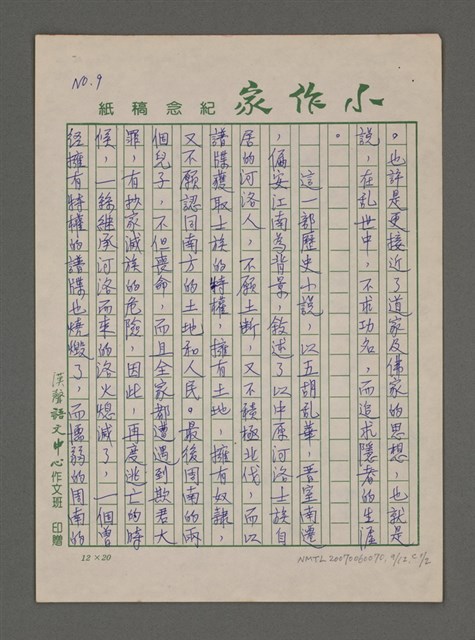 NO.9
小作家
紀念稿紙
。也許是更接近了道家及佛家的思想，也就是
說，在乱世中，不求功名，而追求隱者的生涯
。
這一部歷史小說，以五胡乱華，晋室南遷
，偏安江南為背景，敘述了以中原河洛士族自
居的河洛人，不願土斷，又不積極北伐，而以
譜牒獲取士族的特權，擁有土地，擁有奴隸，
又不願認同南方的土地和人民。最後周南的兩
個兒子，不但喪命，而且全家都遭遇到欺君大
罪，有抄家滅族的危險，因此，再度逃亡的時
候，一絲繼承河洛而來的洛火熄滅了，一個曾
经擁有特權的譜牒也燒燬了，而懦弱的周南的
漢聲語文中心作文班 印贈
12×20
NMTL20070060075, 9/12, c1/2